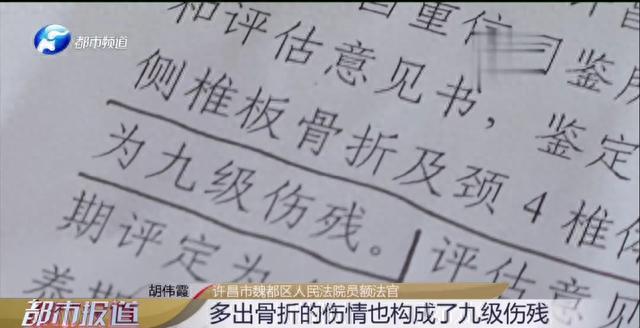 都市频道
和评估意见书，鉴定
侧椎板骨折及颈4椎体
为九级伤残。评估意见
期评定为
养期
胡伟霞 许昌市魏都区人民法院员额法官
都市报道
多出骨折的伤情也构成了九级伤残